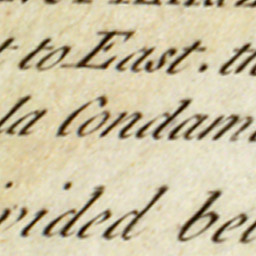 t to East. th
la Condam
vided bet